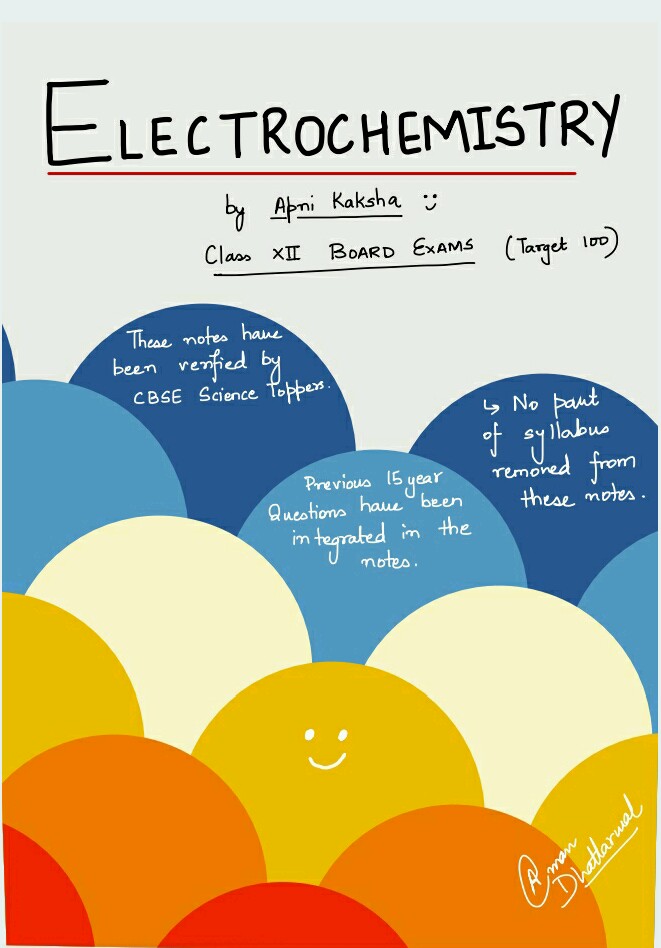 ELECTROCHEMISTRY
by Apni Kaksha
Class XII BOARD EXAMS (Target 100)
These notes have
been verified by
CBSE Science Toppers.
↳ No part
of syllabus
removed from
these notes.
Previous 15 year
Questions have been
integrated in the
notes.
Aman
Dhattarwal